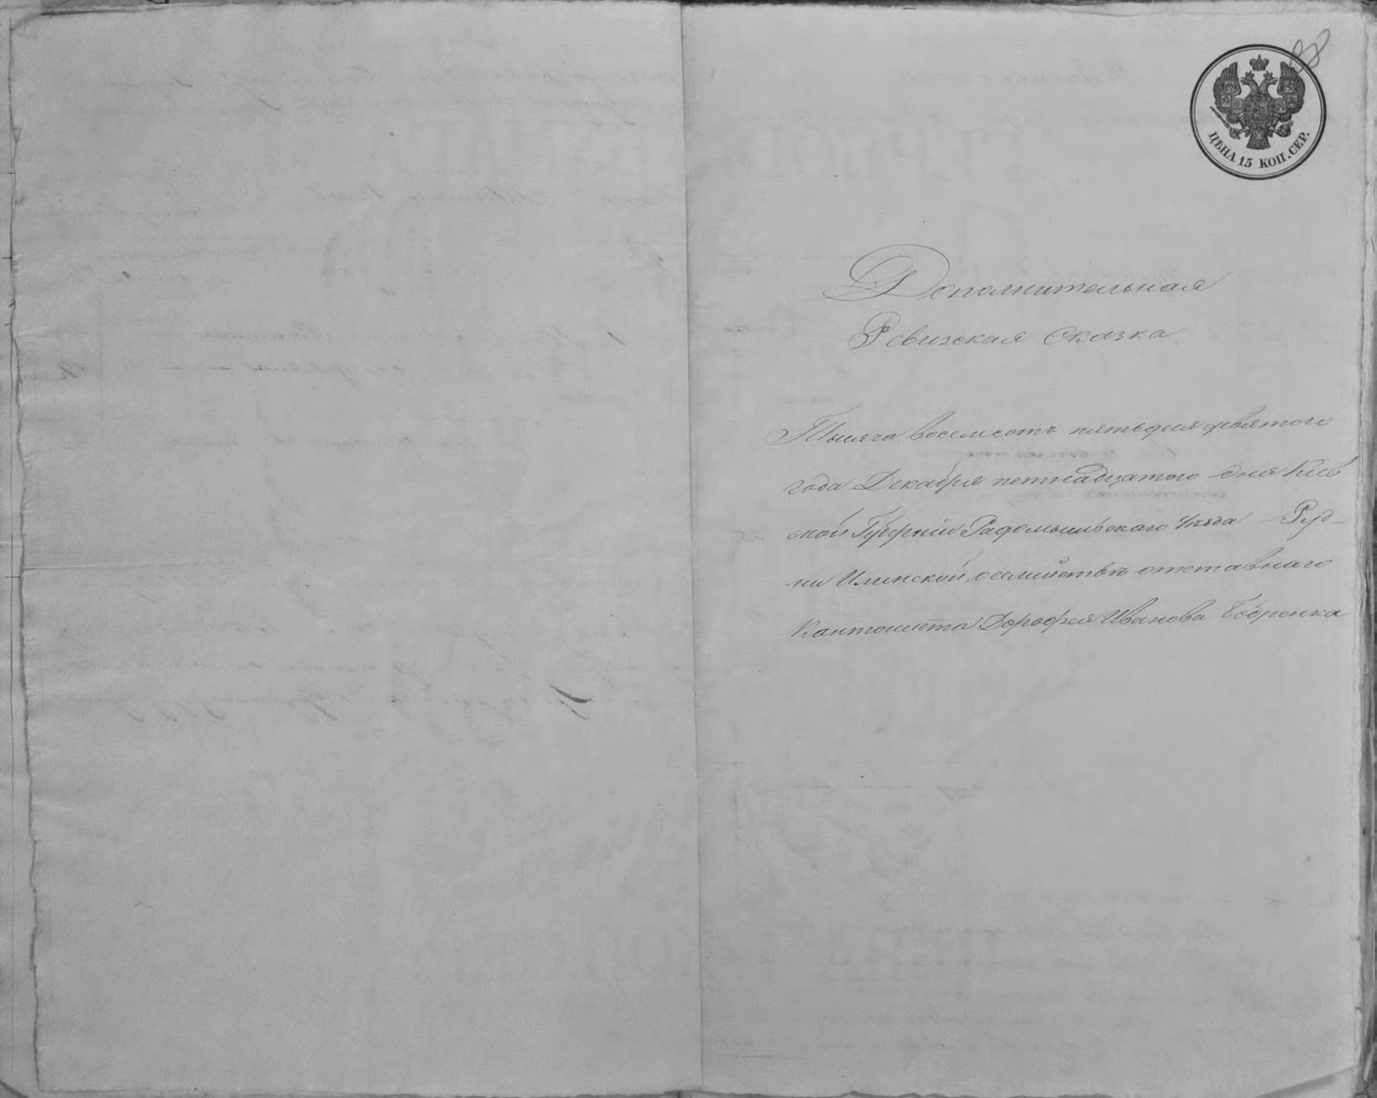 88
ЦѢНА 15 КОП. СЕР.
Дополнительная
Ревизская Сказка
Тысяча восемсотъ пятьдеся девятого
года Декабря петнадцатого дня Кіев
ской Губерніи Радомысльскаго Уѣзда Руд-
ни Илинской, о семийствѣ отставнаго
Кантониста Дорофея Иванова Бобренка